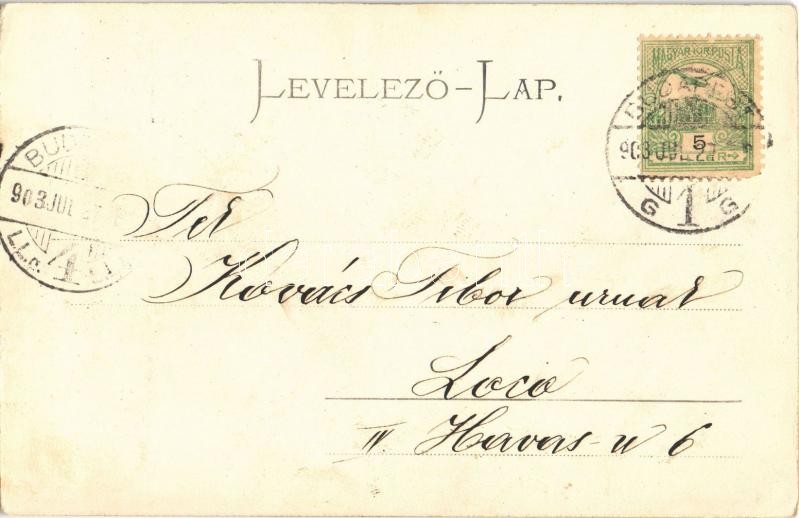 LEVELEZŐ-LAP.
MAGYAR KIR. POSTA
5
BUDAPEST
903 JUL 27
1
G G
BUD
903 JUL 27
Kovács Tibor urnak
Loco
IV. Havas-u 6